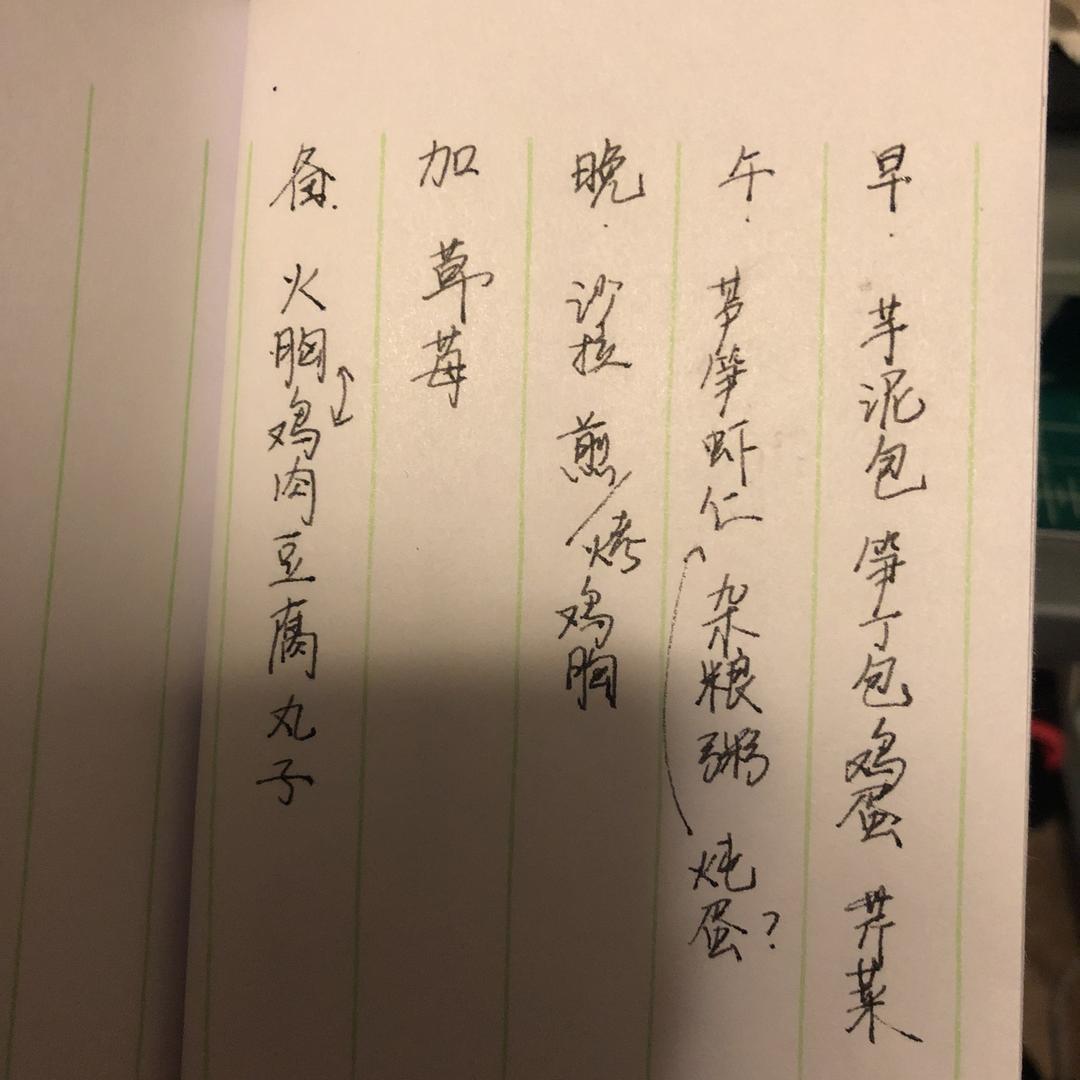 早. 芋泥包 笋丁包 鸡蛋 芹菜
午. 芦笋虾仁 杂粮粥 炖蛋?
晚. 沙拉 煎/烤鸡胸
加 草莓
备. 火胸鸡肉豆腐丸子